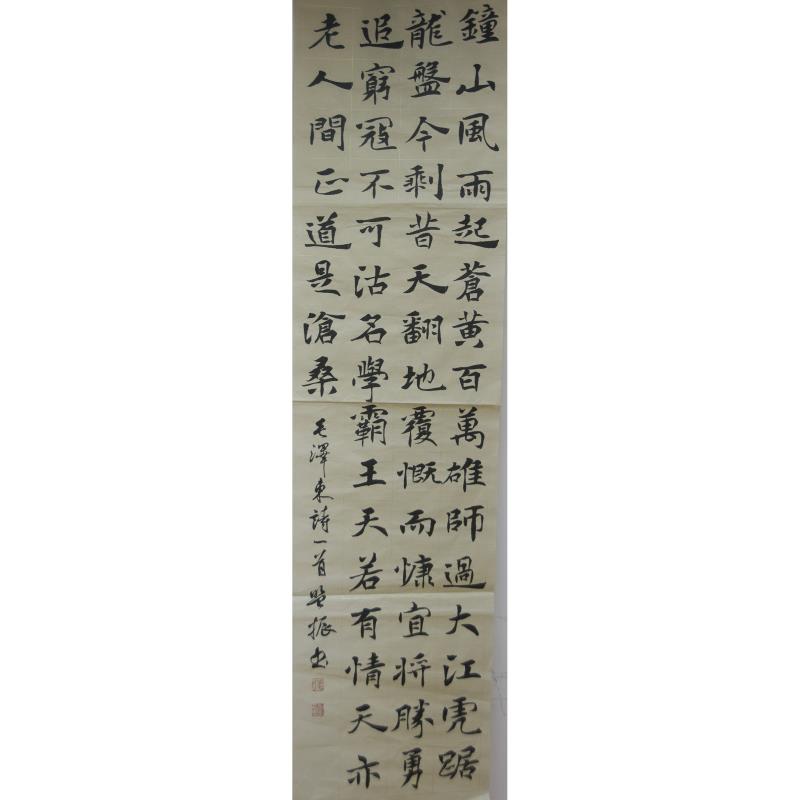 鐘山風雨起蒼黃百萬雄師過大江虎踞
龍盤今剩昔天翻地覆慨而慷宜將勝勇
追窮冦不可沽名學霸王天若有情天亦
老人間正道是滄桑
毛澤東詩一首振书